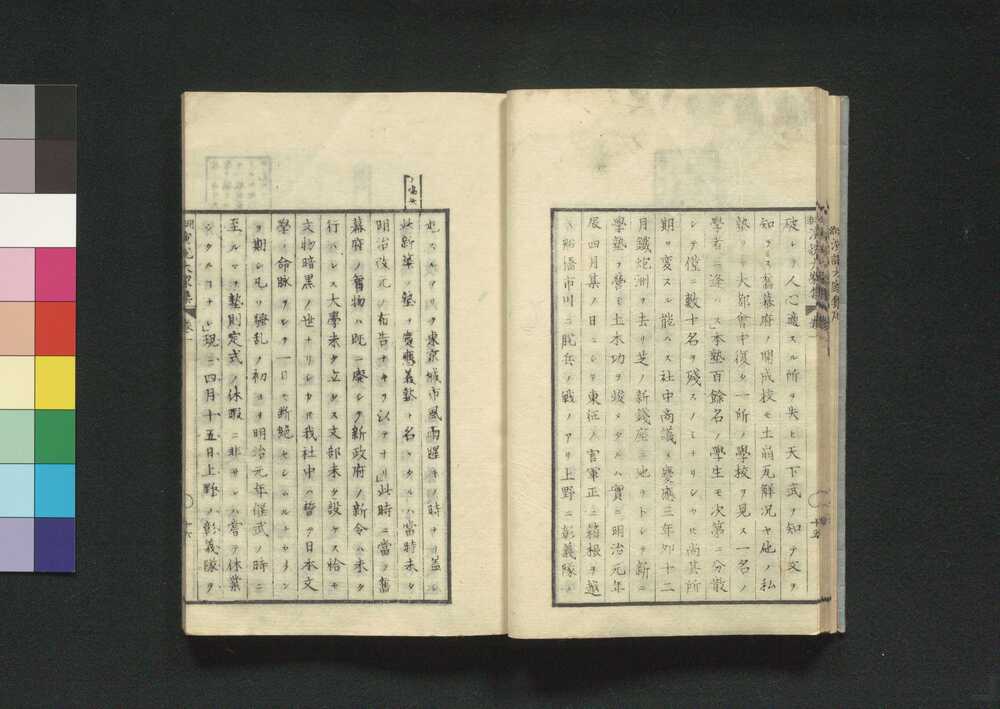 破レテ人心適スル所ヲ失ヒ天下武ヲ知テ文ヲ
知ラス舊幕府ノ開成校モ土崩瓦解況ヤ他ノ私
塾ヲヤ大都會中復タ一所ノ學校ヲ見ス一名ノ
學者ニ逢ハス」本塾百餘名ノ學生モ次第ニ分散
シテ僅ニ數十名ヲ殘スノミナリシカトモ尚其所
期ヲ變スル能ハス社中商議シ慶應三年夘十二
月鐵炮洲ヲ去リ芝ノ新錢座ニ地ヲトシテ新ニ
學塾ヲ營ミ土木功ヲ竣メタルハ實ニ明治元年
辰四月某ノ日ニシテ東征ノ官軍正ニ箱根ヲ越
ヘ船橋市川ニ脱兵ノ戰ノアリ上野ニ彰義隊ノ
十五
ヲ東京城市風雨腥キノ時ナリ蓋シ
此新築ノ塾ヲ慶應義塾ト名シタルハ當時未タ
明治改元ノ布告ナキヲ以テナリ」此時ニ當テ舊
幕府ノ學物ハ既ニ廢シテ新政府ノ新令ハ未タ
行ハレス大學未タ立タス文部未タ設ケス恰モ
文物暗黒ノ世ナリシカトモ我社中ハ誓テ日本文
學ノ命脉ヲシテ一日モ断絶セシムルナカラン
ヲ期シ凡リ騷乱ノ初ヨリ明治元年偃武ノ時ニ
至ルマテ塾則定式ノ休暇ニ非サレハ嘗テ休業
シタルコナシ」現ニ四月十五日上野ノ彰義隊ヲ
十六